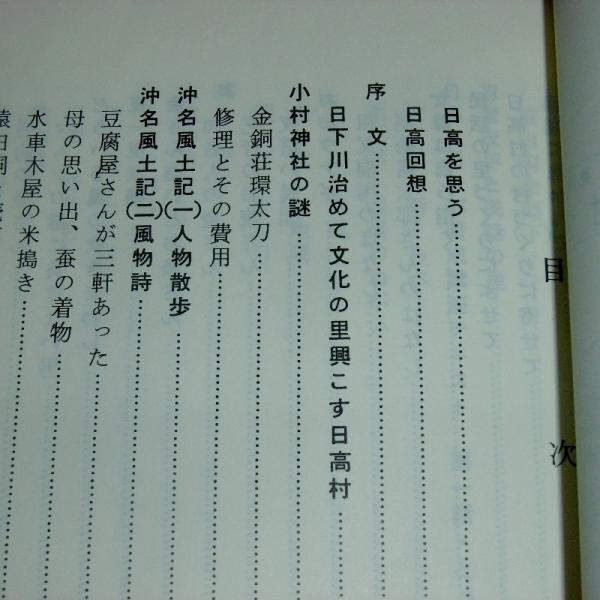 目次
日高を思う
日高回想
序文
日下川治めて文化の里興こす日高村
小村神社の謎
金銅荘環太刀
修理とその費用
沖名風土記(一)人物散歩
沖名風土記(二)風物詩
豆腐屋さんが三軒あった
母の思い出、蚕の着物
水車木屋の米搗き